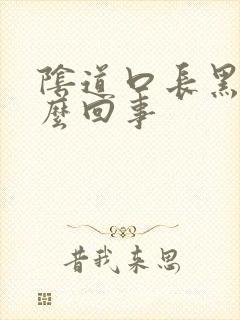 陰道口長黑
麼回事
昔我来思